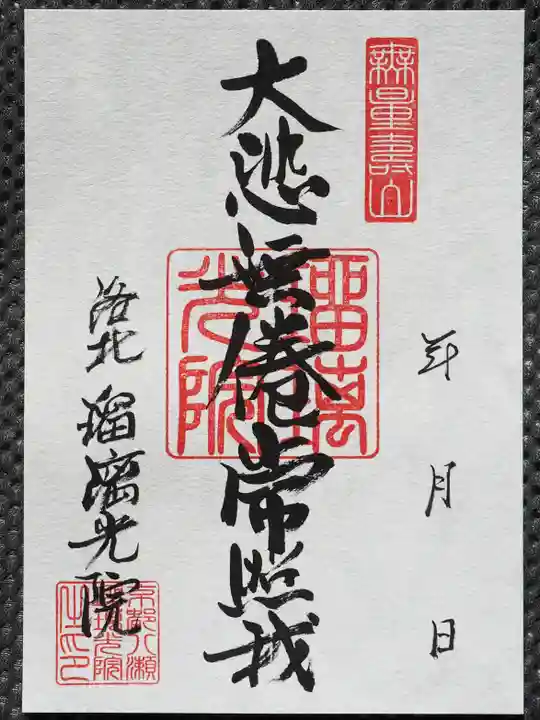 無量壽山
年 月 日
大悲無倦常照我
瑠璃光院
洛北 瑠璃光院
京都八瀬
光院